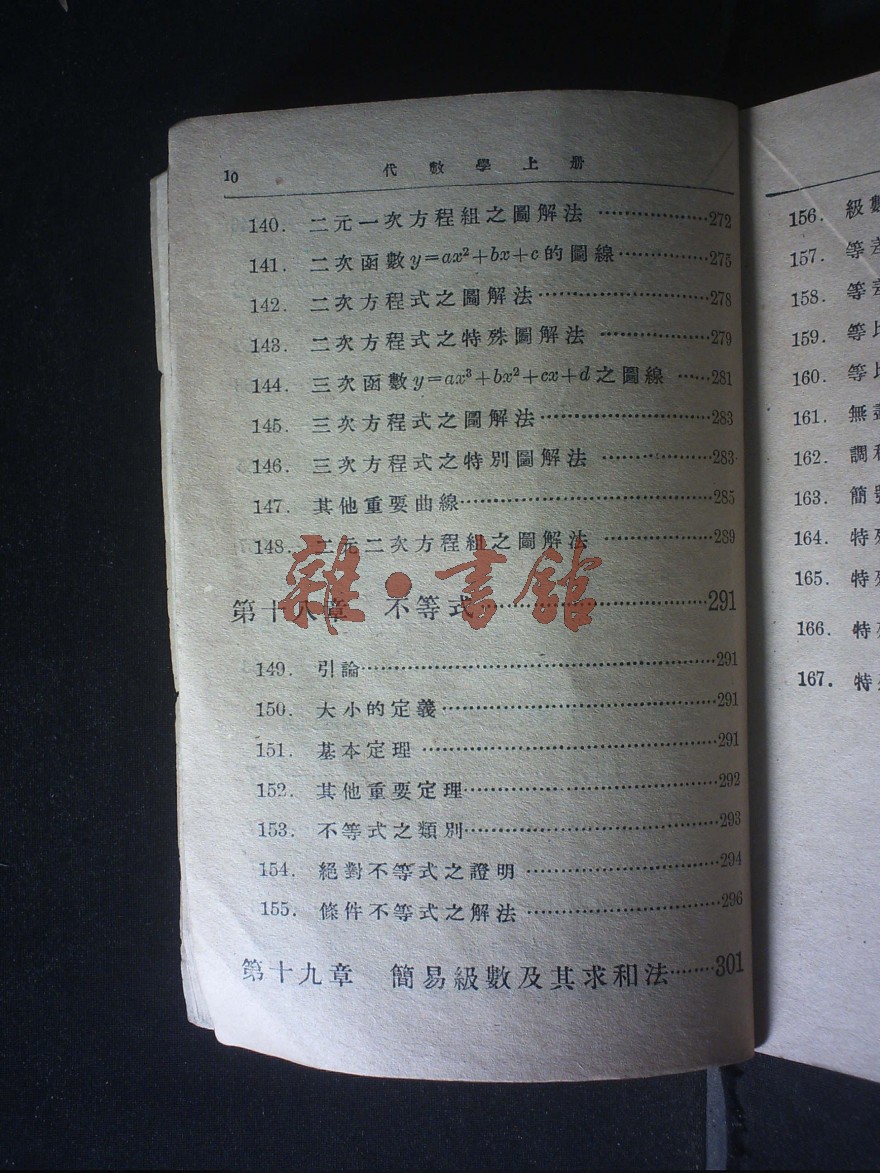 10 代數學上册
140. 二元一次方程組之圖解法 ………………272
141. 二次函數y=ax²+bx+c的圖線…………275
142. 二次方程式之圖解法………………………278
143. 二次方程式之特殊圖解法 ………………279
144. 三次函數y=ax³+bx²+cx+d之圖線 ……281
145. 三次方程式之圖解法………………………283
146. 三次方程式之特別圖解法 ………………283
147. 其他重要曲線…………………………………285
148. 二元二次方程組之圖解法 ………………289
雜·書館
第十八章 不等式………………………291
149. 引論……………………………………………291
150. 大小的定義……………………………………291
151. 基本定理 ……………………………………291
152. 其他重要定理…………………………………292
153. 不等式之類別…………………………………293
154. 絕對不等式之證明 …………………………294
155. 條件不等式之解法 …………………………296
第十九章 簡易級數及其求和法………301
156. 級數
157. 等差
158. 等差
159. 等比
160. 等比
161. 無
162. 調和
163. 簡
164. 特殊
165. 特殊
166. 特殊
167. 特殊